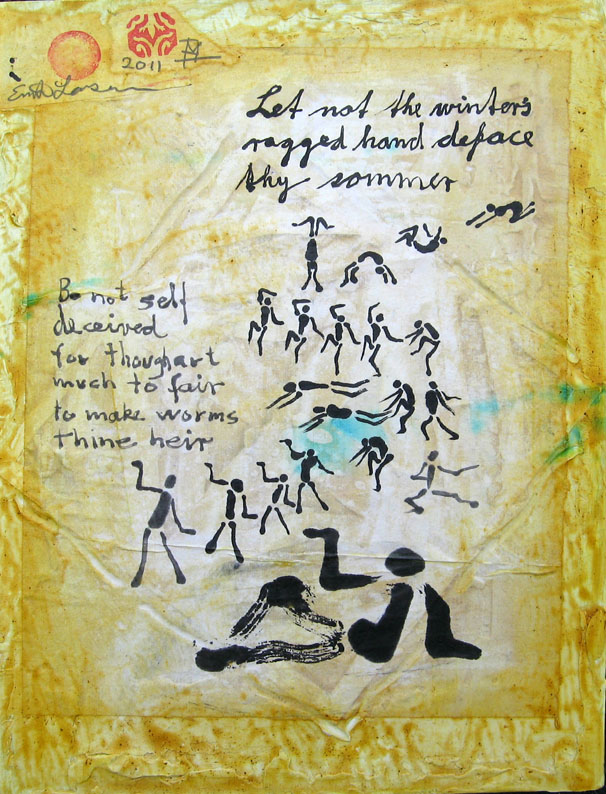 2011
Let not the winter's
ragged hand deface
thy sommer
Be not self
deceived
for though art
much to fair
to make worms
thine heir